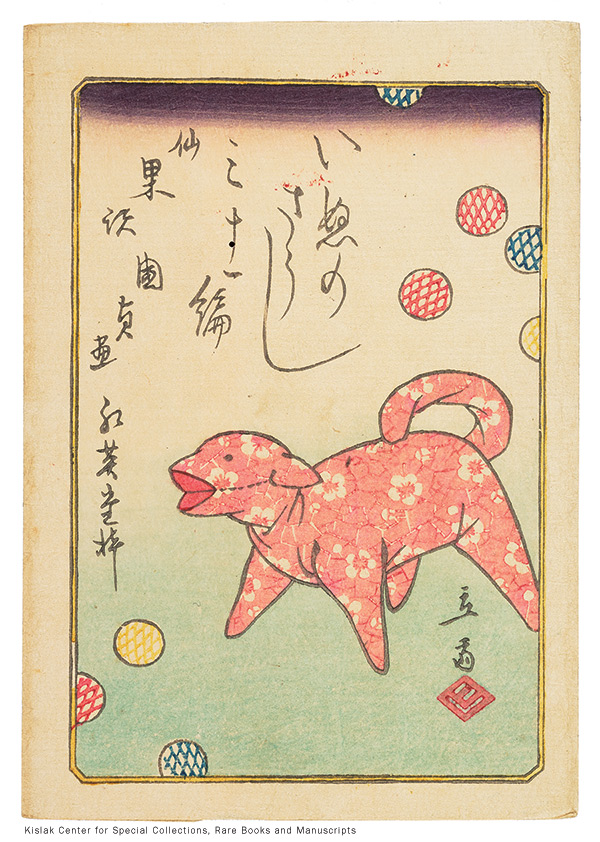 いぬの
さうし
三十一編
仙果
國貞画
紅英堂梓
立斎
Kislak Center for Special Collections, Rare Books and Manuscripts